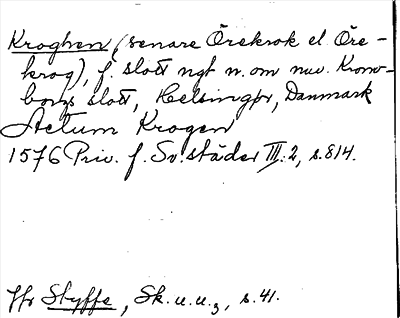 Kroghen (senare Örekrok el. Öre-
krog), f. slott ngt n. om nuv. Kron-
borgs slott, Helsingør, Danmark
Actum Krogen
1576 Priv. f. Sv. städer III:2, s. 814.
Jfr Styffe, Sk. u. u. 3, s. 41.